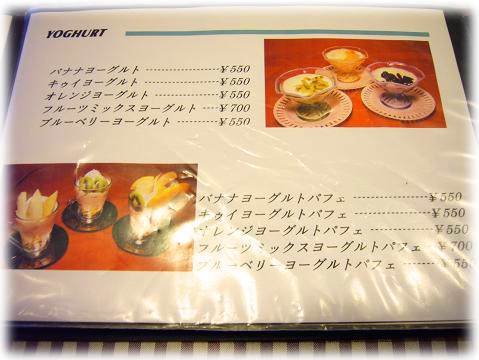 YOGHURT
バナナヨーグルト ¥550
キゥイヨーグルト ¥550
オレンジヨーグルト ¥550
フルーツミックスヨーグルト ¥700
ブルーベリーヨーグルト ¥550
バナナヨーグルトパフェ ¥550
キゥイヨーグルトパフェ ¥550
オレンジヨーグルトパフェ ¥550
フルーツミックスヨーグルトパフェ ¥700
ブルーベリーヨーグルトパフェ ¥550